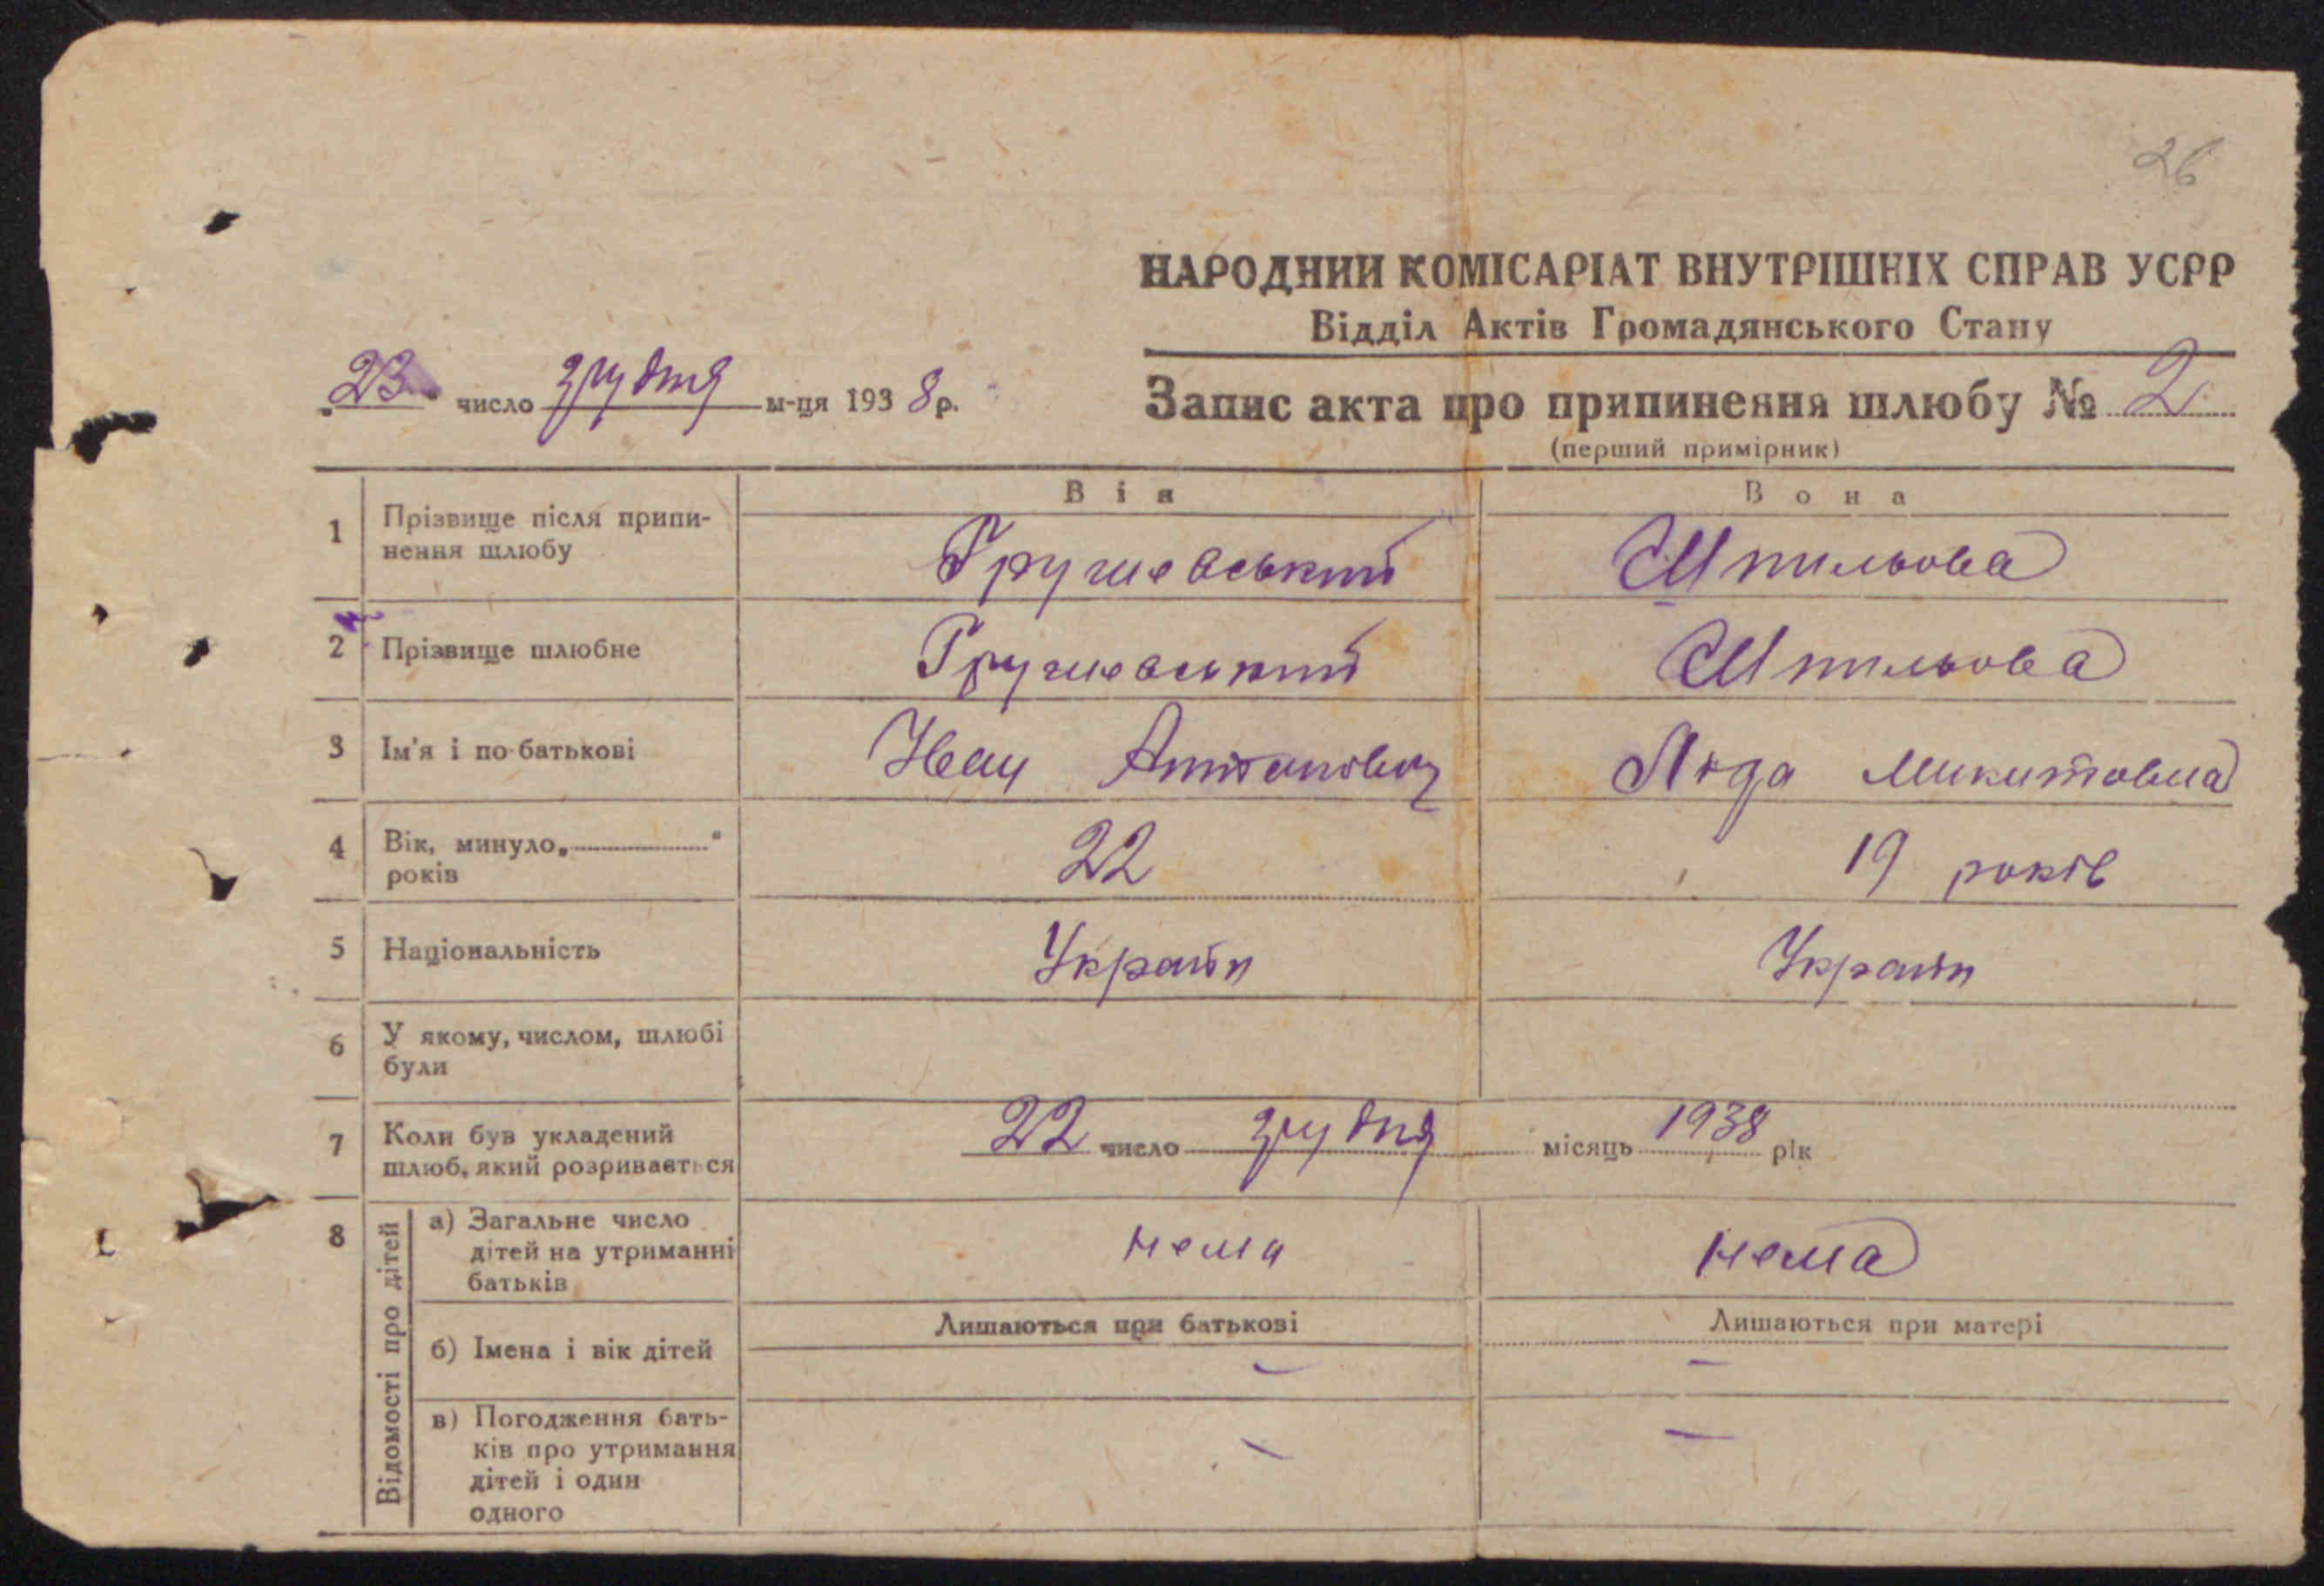 26
НАРОДНИЙ КОМІСАРІАТ ВНУТРІШНІХ СПРАВ УСРР
Відділ Актів Громадянського Стану
„23" число грудня м-ця 1938 р.
Запис акта про припинення шлюбу № 2
(перший примірник)
Він Вона
1 Прізвище після припи-
нення шлюбу
Грушевський Шпильова
2 Прізвище шлюбне Грушевський Шпильова
3 Ім'я і по-батькові Иван Антонович Ліда Микитовна
4 Вік, минуло „ "
років
22 19 років
5 Національність Україн Україн
6 У якому, числом, шлюбі
були
7 Коли був укладений
шлюб, який розривається
22 число грудня місяць 1938 рік
8 Відомості про дітей
а) Загальне число
дітей на утриманні
батьків
нема нема
б) Імена і вік дітей
Лишаються при батькові Лишаються при матері
– –
в) Погодження бать-
ків про утримання
дітей і один
одного
– –